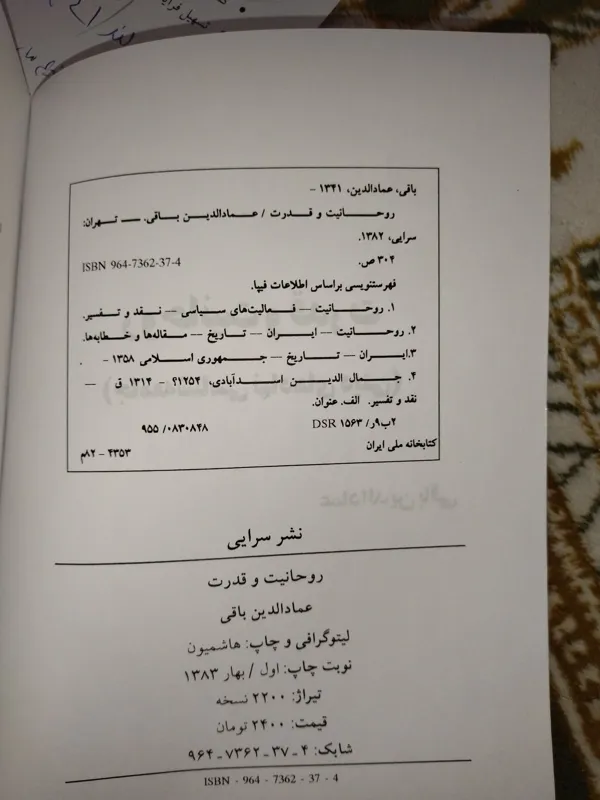 تسهیل فرآ
باقی، عمادالدین، ۱۳۴۱ –
روحـانیت و قـدرت / عـمادالدیـن بـاقی. — تـهران:
سرایی، ۱۳۸۲.
۳۰۴ ص. ISBN 964-7362-37-4
فهرستنویسی براساس اطلاعات فیپا.
۱. روحـانیت — فـعالیت‌های سـیاسی — نـقد و تـفسیر.
۲. روحـانیت — ایـران — تـاریخ — مـقاله‌ها و خـطابه‌ها.
۳.ایـران — تـاریخ — جـمهوری اسـلامی ۱۳۵۸ - .
۴. جـمال الدیـن اسـدآبادی، ۱۲۵۴؟ - ۱۳۱۴ ق —
نقد و تفسیر. الف. عنوان.
۲ب۹ر/ DSR ۱۵۶۳ ۹۵۵ /۰۸۳۰۸۴۸
کتابخانه ملی ایران ۴۳۵۳ – ۸۲م
نشر سرایی
روحانیت و قدرت
عمادالدین باقی
لیتوگرافی و چاپ: هاشمیون
نوبت چاپ: اول / بهار ۱۳۸۳
تیراژ: ۲۲۰۰ نسخه
قیمت: ۲۴۰۰ تومان
شابک: ۴ ـ ۳۷ ـ ۷۳۶۲ ـ ۹۶۴
ISBN - 964 - 7362 - 37 - 4